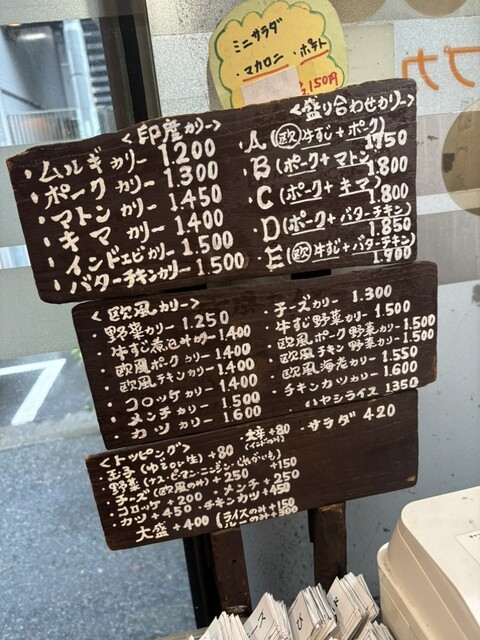 ミニサラダ
・マカロニ ・ポテト
150円
<印度カリー>
・ムルギカリー 1.200
・ポークカリー 1.300
・マトンカリー 1.450
・キマカリー 1.400
・インドエビカリー 1.500
・バターチキンカリー 1.500
<盛り合わせカリー>
・A(欧牛すじ+ポーク) 1750
・B(ポーク+マトン) 1.800
・C(ポーク+キマ) 1.800
・D(ポーク+バターチキン) 1.850
・E(欧牛すじ+バターチキン) 1.900
<欧風カリー>
・野菜カリー 1.250
・牛すじ煮込みカリー 1.400
・欧風ポークカリー 1.400
・欧風チキンカリー 1.400
・コロッケカリー 1.400
・メンチカリー 1.500
・カツカリー 1.600
・チーズカリー 1.300
・牛すじ野菜カリー 1.500
・欧風ポーク野菜カリー 1.500
・欧風チキン野菜カリー 1.500
・欧風海老カリー 1.550
・チキンカツカリー 1.600
・ハヤシライス 1350
<トッピング>
・玉子(ゆでor生)+80
・野菜(ナス・ピーマン・ニンジン・じゃがいも) +150
・チーズ(欧風のみ)+250
・コロッケ+200 ・メンチ+250
・カツ+450 ・チキンカツ+450
大盛+400(ライスのみ+150
ルーのみ+300
+80
(インドのみ)
・サラダ 420